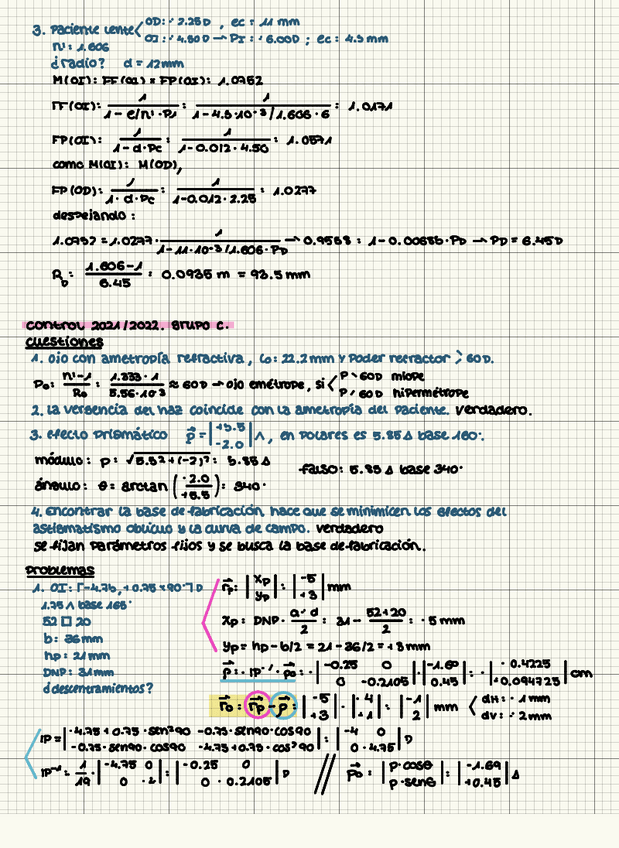 3. Paciente lente < OD: -2.25D, ec = 11 mm
OI: -4.50D → PI = -6.00D ; ec: 4.5 mm
n': 1.606
¿radio? d = 12mm
M(OI): FF(OI) × FP(OI): 1.0752
FF(OI): 1 / 1 - e/n' · P1 : 1 / 1-4.5·10⁻³/1.606 · 6 : 1.0171
FP(OI): 1 / 1-d·Pc : 1 / 1-0.012·4.50 : 1.0571
como M(OI): M(OD),
FP(OD): 1 / 1·d·Pc : 1 / 1-0.012·2.25 : 1.0277
despejando:
1.0752 = 1.0277 · 1 / 1-11·10⁻³/1.606·PD → 0.9558 : 1-0.00685·PD → PD = 6.45D
RD: 1.606-1 / 6.45 : 0.0935 m = 93.5mm
Control 2021/2022. Grupo C.
Cuestiones
1. Ojo con ametropía refractiva, lo: 22.2mm y poder refractor > 60D.
Po: n'-1 / Ro : 1.333·1 / 5.56·10⁻³ ≈ 60D → ojo emétrope, si < P > 60D miope
P < 60D hipermétrope
2. La vergencia del haz coincide con la ametropía del paciente. Verdadero.
3. Efecto prismático p⃗ = |+5.5 -2.0| ∧, en polares es 5.85Δ base 160°.
módulo: p: √5.5²+(-2)² : 5.85Δ
-Falso: 5.85Δ base 340°
ángulo: θ = arctan (-2.0 / +5.5) : 340°
4. Encontrar la base de fabricación, hace que se minimicen los efectos del
astigmatismo oblicuo y la curva de campo. Verdadero
Se fijan parámetros fijos y se busca la base de fabricación.
Problemas
1. OI: [-4.75, +0.75 × 90°] D
1.75 ∧ base 165°
52 □ 20
b: 36mm
hp: 21mm
DNP: 31mm
¿descentramientos?
r⃗p: |xp yp| : |-5 +3| mm
xp: DNP - a+d / 2 : 31 - 52+20 / 2 : -5 mm
yp = hp - b/2 = 21-36/2 = +3mm
ρ⃗: -IP⁻¹ · p⃗o : -|-0.25 0 0 -0.2105| · |-1.69 0.45| : -|0.4225 +0.094725| cm
r⃗o: r⃗p - ρ⃗ : |-5 +3| - |-4 +1| : |-1 2| mm < dH: -1mm
dV: -2mm
IP = |-4.75+0.75·sen²90 -0.75·sen90·cos90 -0.75·sen90·cos90 -4.75+0.75·cos²90| : |-4 0 0 -4.75| D
IP⁻¹: 1 / 19 · |-4.75 0 0 -4| : |-0.25 0 0 -0.2105| D // p⃗o: |p·cosθ p·senθ| : |-1.69 +0.45| Δ